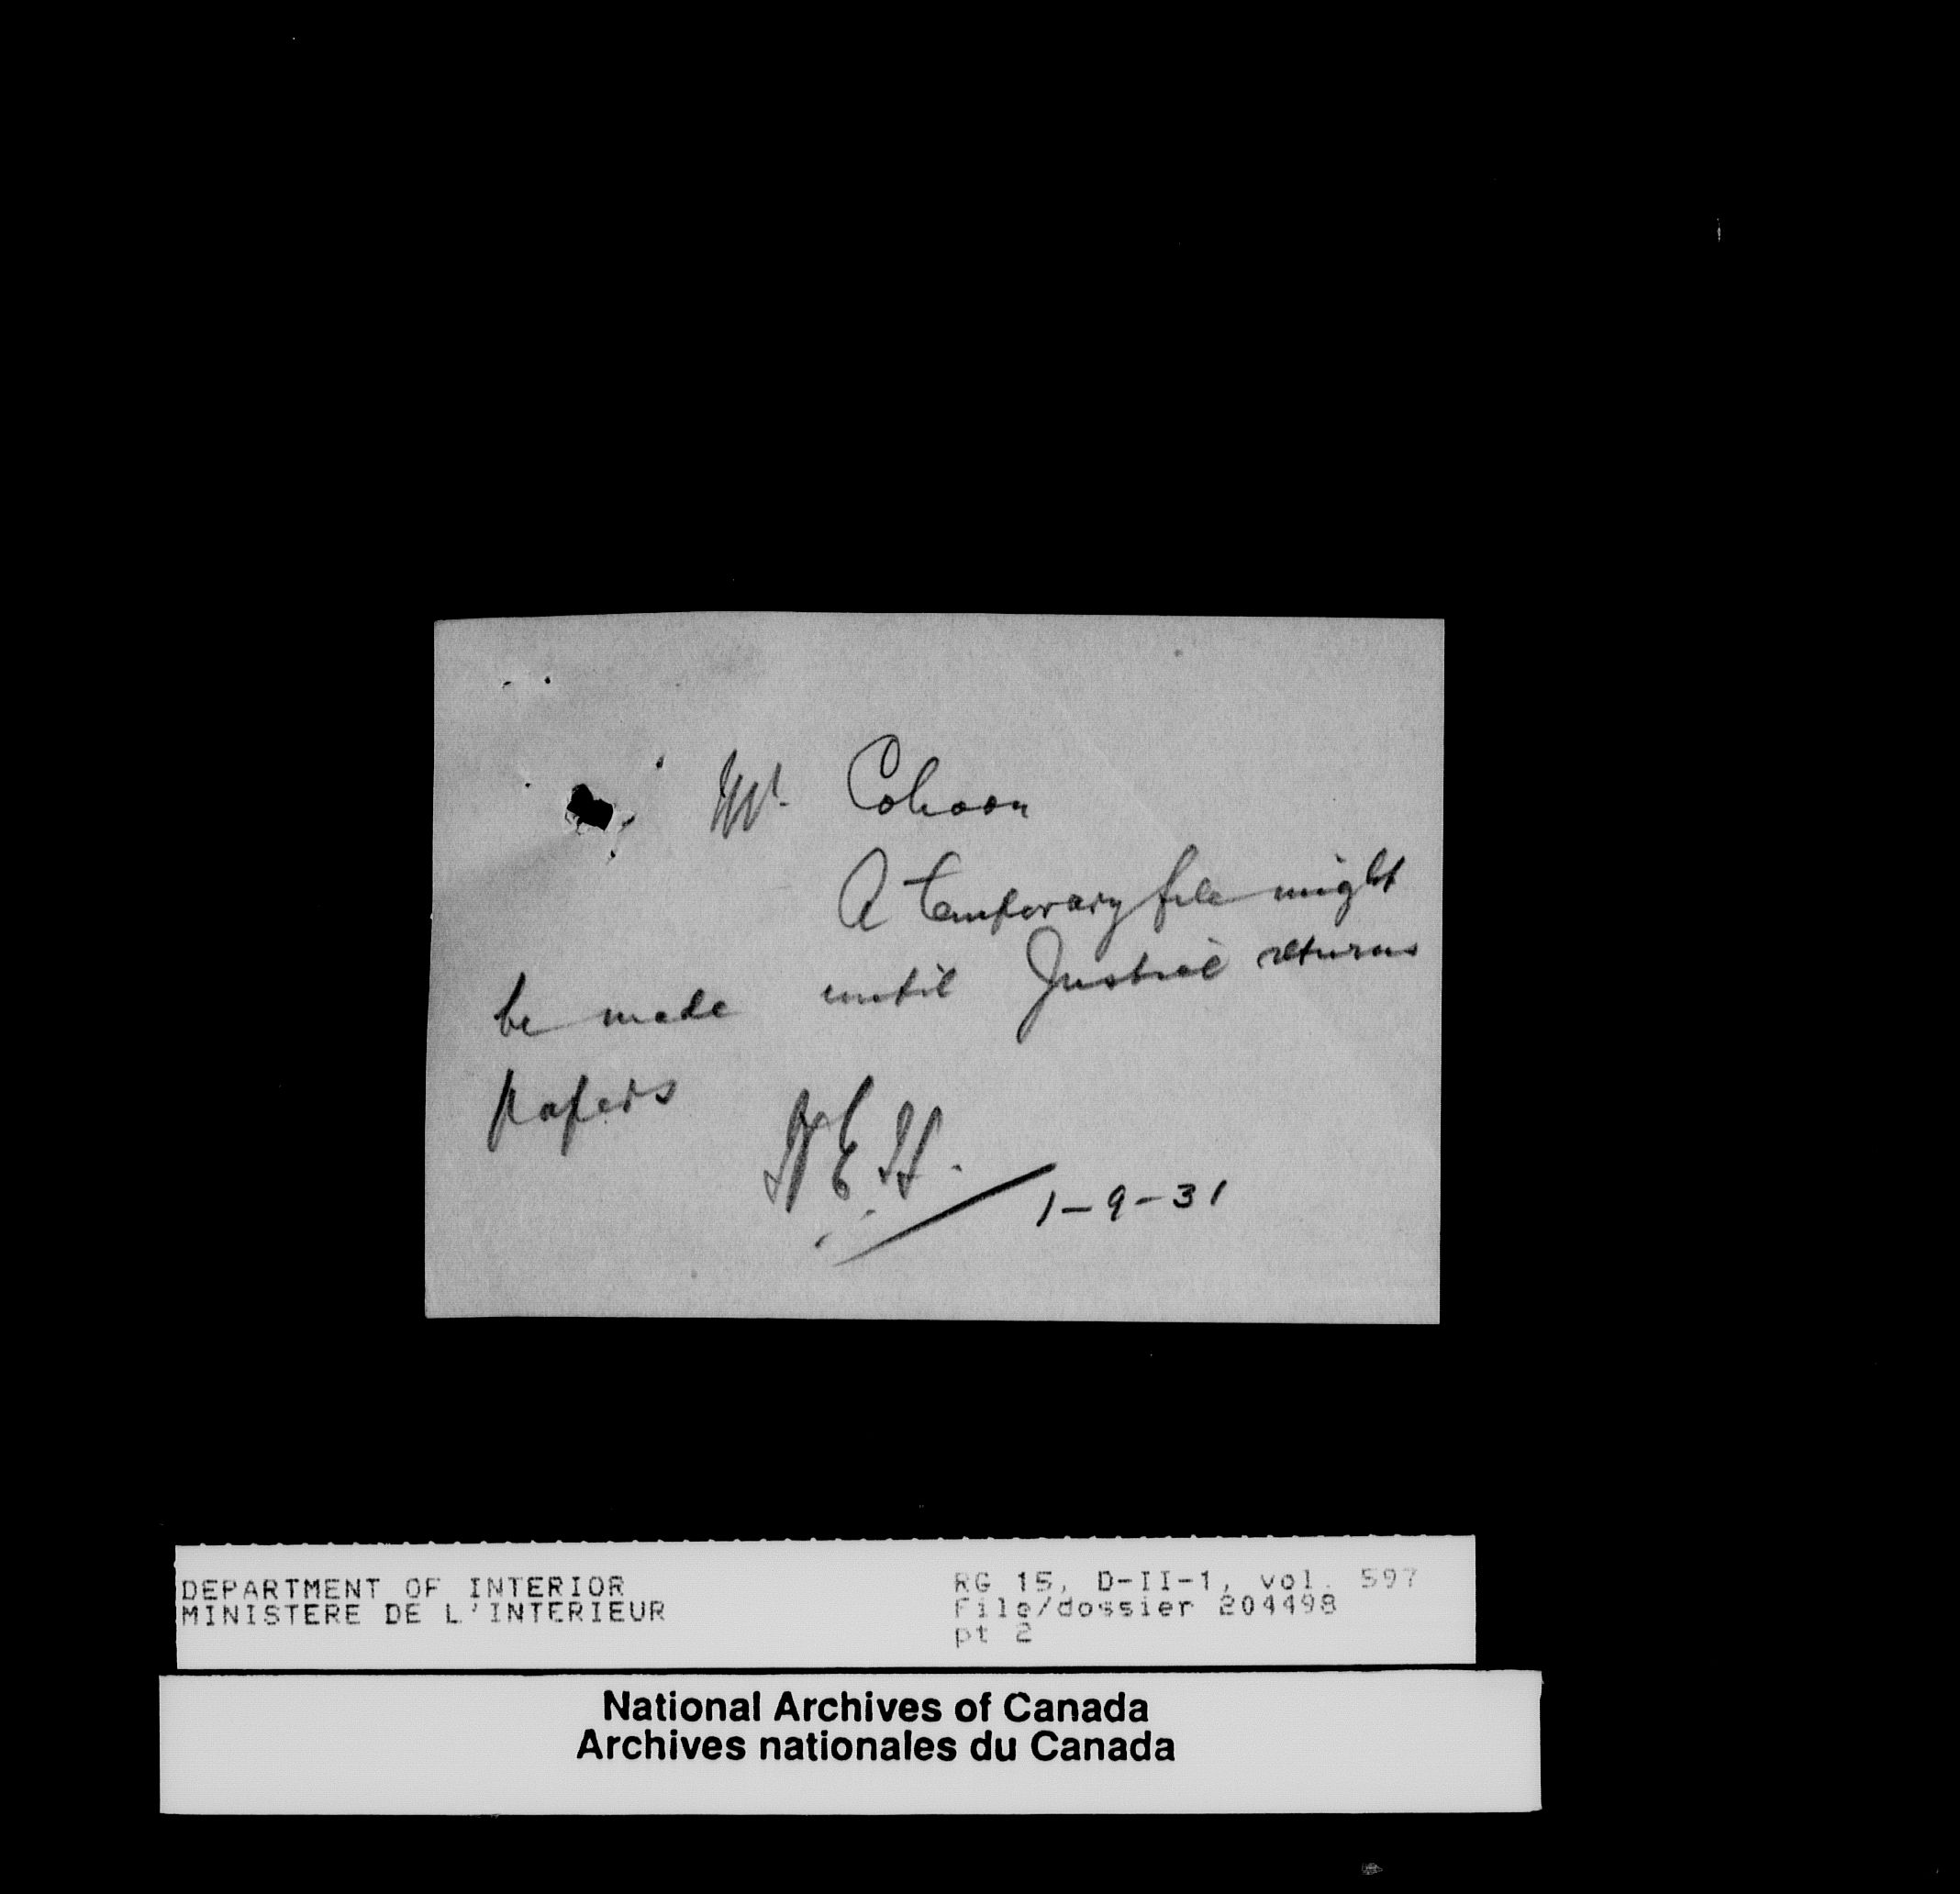 Mr. Cohoon
A temporary file might
be made until Justice returns
papers
N E H.
1-9-31
DEPARTMENT OF INTERIOR
MINISTERE DE L'INTERIEUR
RG 15, D-II-1, vol. 597
File/dossier 204498
pt 2
National Archives of Canada
Archives nationales du Canada